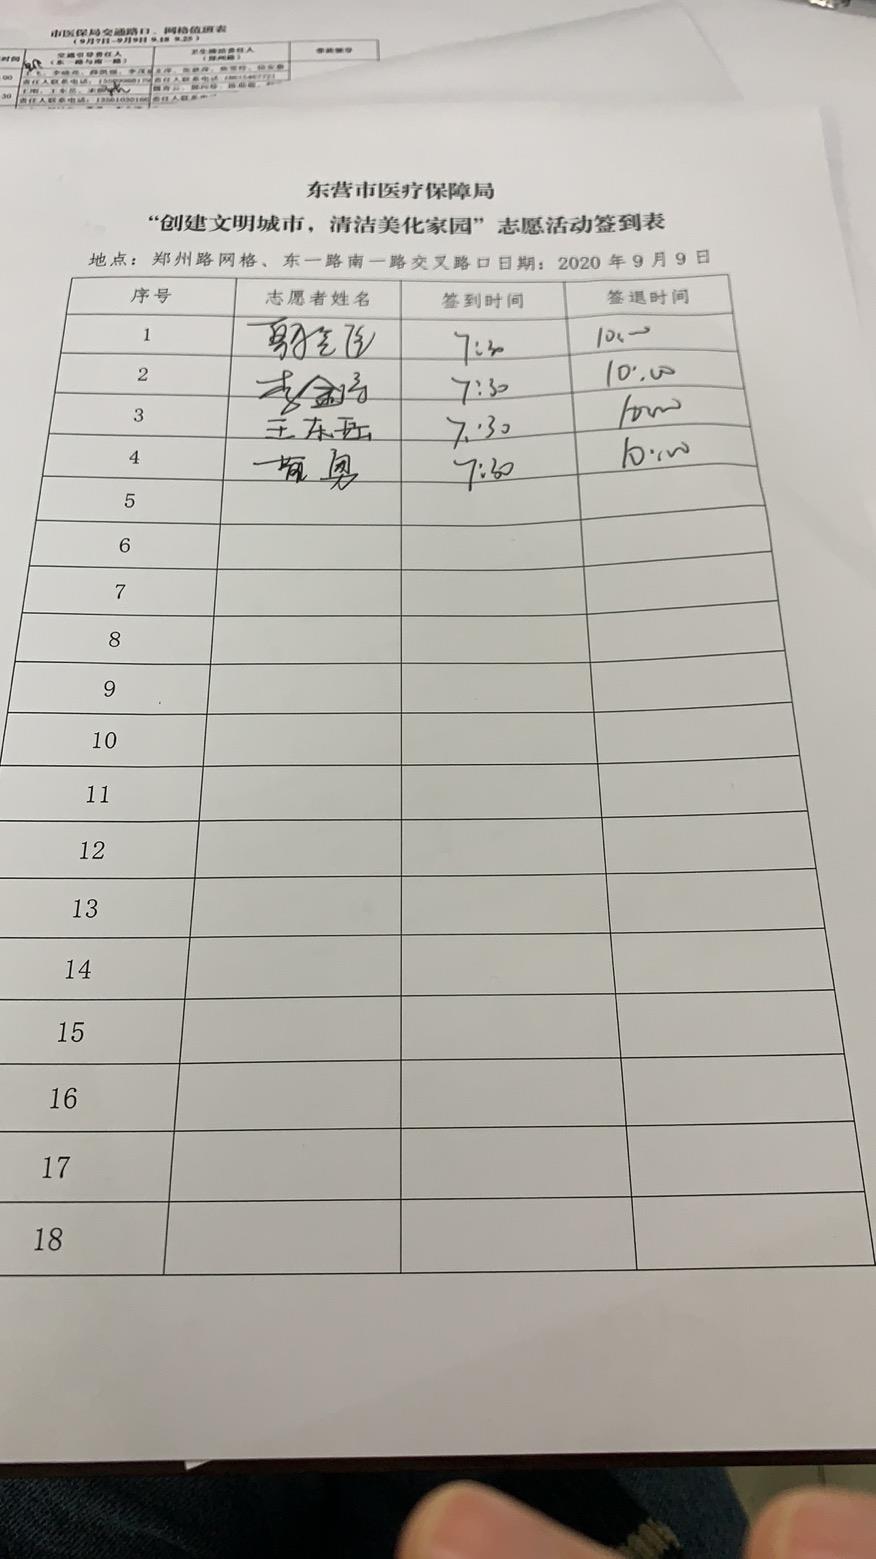 市医保局交通路口、网格值班表
（9月7日-9月9日 9.18 9.25）
时间 交通引导责任人 卫生清洁责任人 带班领导
（东一路与南一路） （郑州路）
责任人联系电话： 责任人联系电话
责任人联系电话： 责任人联系
东营市医疗保障局
“创建文明城市，清洁美化家园”志愿活动签到表
地点：郑州路网格、东一路南一路交叉路口日期：2020年9月9日
序号 志愿者姓名 签到时间 签退时间
1 7:30 10:00
2 7:30 10:00
3 王东岳 7:30 10:00
4 7:30 10:00
5
6
7
8
9
10
11
12
13
14
15
16
17
18